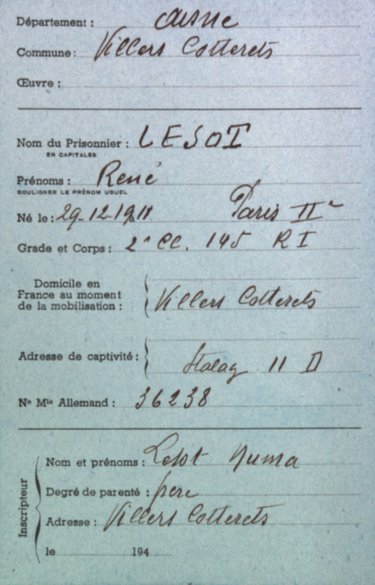 Département : Aisne
Commune : Villers Cotterets
Œuvre :
Nom du Prisonnier : LESOT
EN CAPITALES
Prénoms : René
SOULIGNER LE PRÉNOM USUEL
Né le : 29.12.1911 Paris IIe
Grade et Corps : 2e Cl. 145 RI
Domicile en
France au moment
de la mobilisation : Villers Cotterets
Adresse de captivité : Stalag II D
No Mle Allemand : 36238
Inscripteur
Nom et prénoms : Lesot Numa
Degré de parenté : père
Adresse : Villers Cotterets
le 194